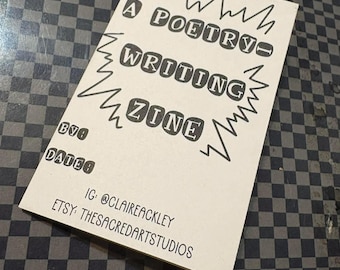 A POETRY-
WRITING
ZINE
BY:
DATE:
IG: @CLAIREACKLEY
ETSY: THESACREDARTSTUDIOS